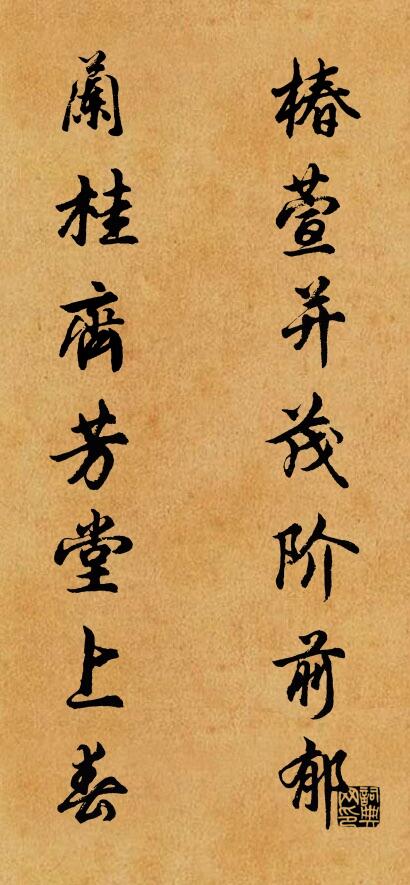 椿萱并茂阶前郁
蘭桂齊芳堂上春